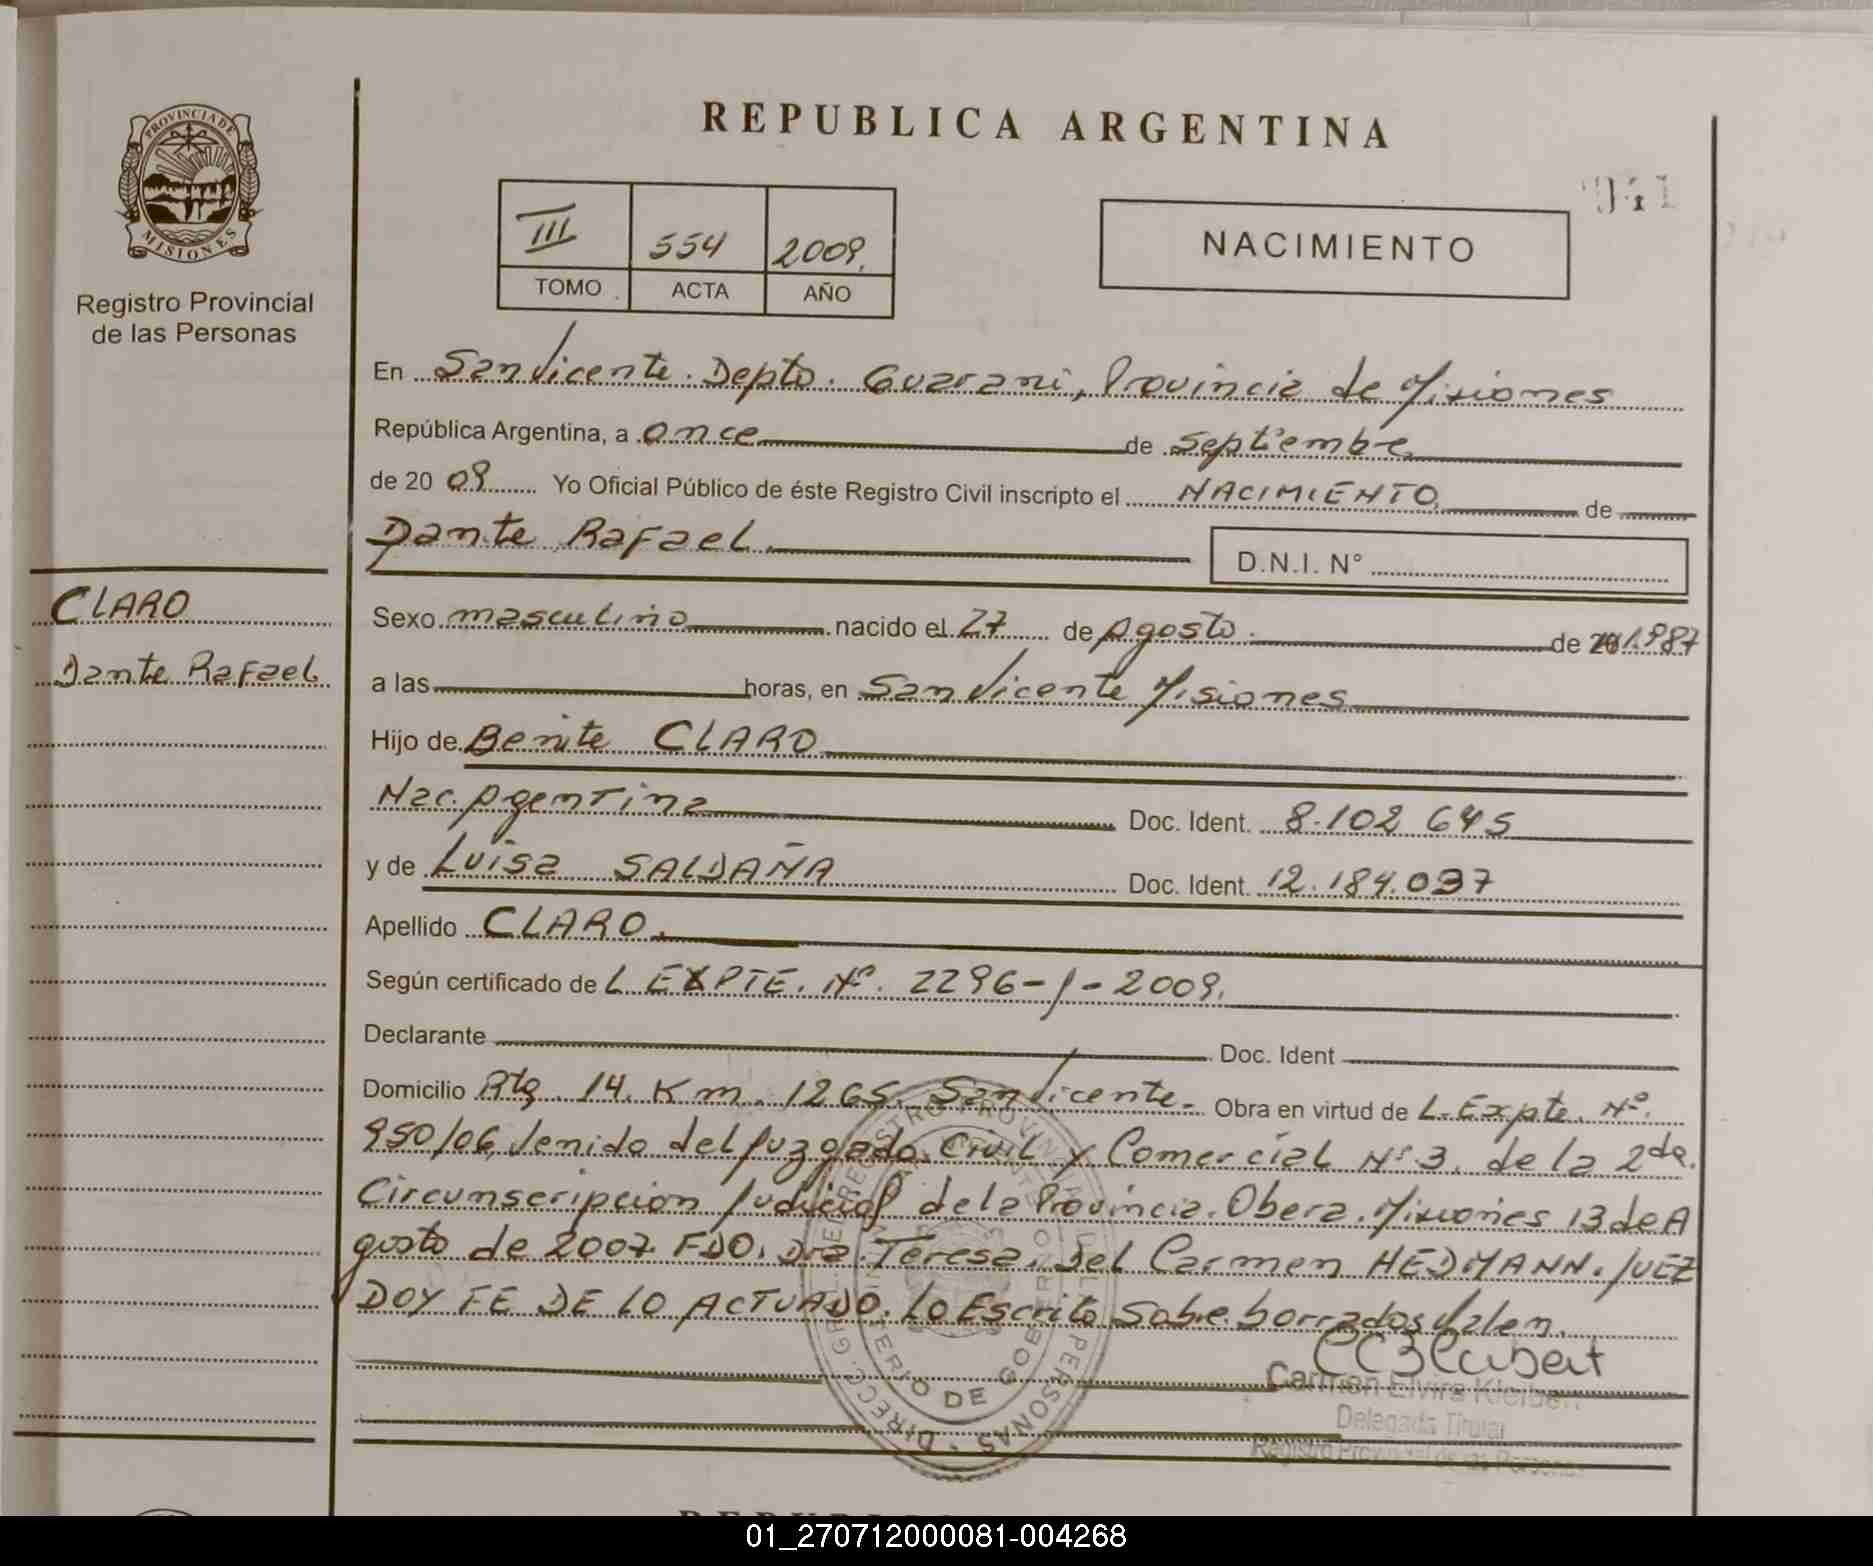 PROVINCIA DE
MISIONES
Registro Provincial
de las Personas
REPUBLICA ARGENTINA
III 554 2009.
TOMO ACTA AÑO
NACIMIENTO
En San Vicente. Depto. Guarani, Provincia de Misiones
República Argentina, a once de septiembre
de 20 09 Yo Oficial Público de éste Registro Civil inscripto el NACIMIENTO de
Dante Rafael.
D.N.I. N°
CLARO
Dante Rafael
Sexo masculino nacido el 27 de Agosto. de 1.987
a las horas, en San Vicente Misiones
Hijo de Benite CLARO
Nac. Agentina Doc. Ident. 8.102 645
y de Luisa SALDAÑA Doc. Ident. 12.184.037
Apellido CLARO.
Según certificado de L EXPTE. Nº. 2296-J-2009.
Declarante Doc. Ident
Domicilio Rta. 14. Km. 1265. San Vicente. Obra en virtud de L. Expte. Nº.
950/06, Venido del Juzgado Civil y Comercial Nº 3. de la 2da.
Circunscripcion Judicial de la Provincia. Obera. Misiones 13 de A
gosto de 2007. FDO. Dra. Teresa. Del Carmen HEDMANN. JUEZ
DOY FE DE LO ACTUADO. Lo Escrito Sobre borrados Valen.
Carmen Elvira
Delegada Titular
Registro Provincial de las Personas
MINISTERIO DE GOBIERNO
01_270712000081-004268